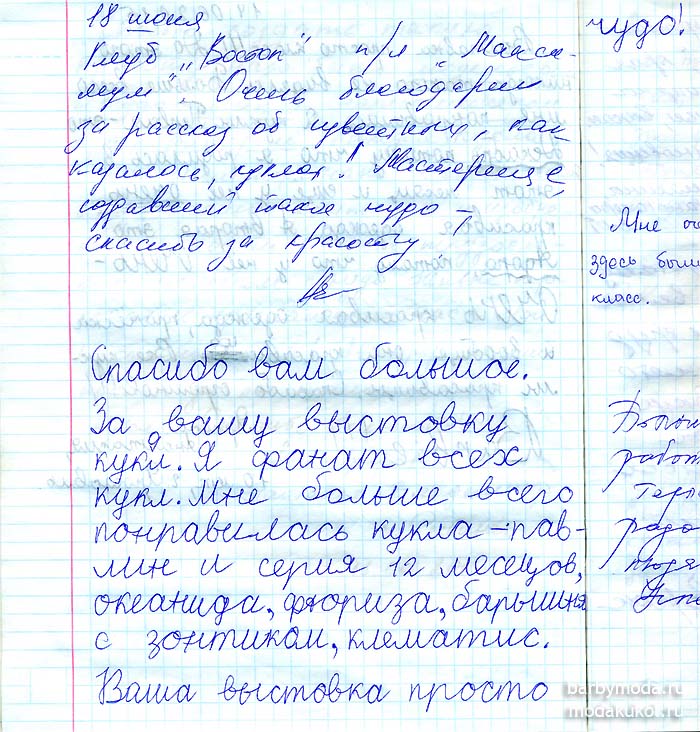 18 июня
Клуб „Восток" п/л „Макси-
мум". Очень благодарим
за рассказ об известных, как
казалось, куклах! Мастерице
создавшей такое чудо –
спасибо за красоту!
Спасибо вам большое.
За вашу выстовку
кукл. Я фанат всех
кукл. Мне больше всего
понравилась кукла – пав-
лин и серия 12 месецов,
океанида, фюриза, барышня
с зонтиком, клематис.
Ваша выстовка просто
чудо!
Мне оч
здесь были
класс.
работ
Терп
радо
людя
Успе
barbymoda.ru
modakukol.ru